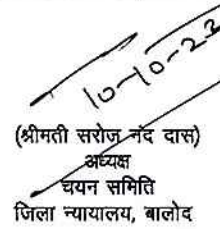 10-10-22
(श्रीमती सरोज नंद दास)
अध्यक्ष
चयन समिति
जिला न्यायालय, बालोद